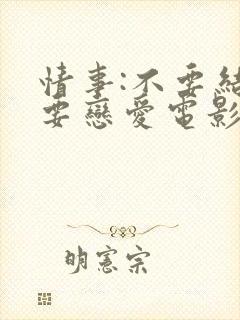 情事:不要結
要戀愛電影
明憲宗